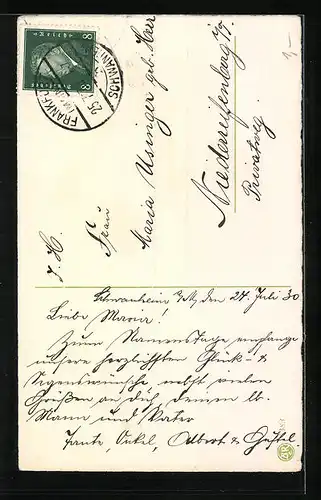 8 8
Deutsches Reich
FRANKFURT
SCHWANHEIM
25
J. H.
Frau
Maria Usinger geb. Herr
Niederreifenberg i/T.
Privatweg
Schwanheim a/M, den 24. Juli 30
Liebe Maria!
Zum Namenstage empfange
unsere herzlichsten Glück- &
Segenswünsche nebst vielen
Grüßen an dich, deinen lb.
Mann und Vater
Tante, Onkel, Albert & Gustel.